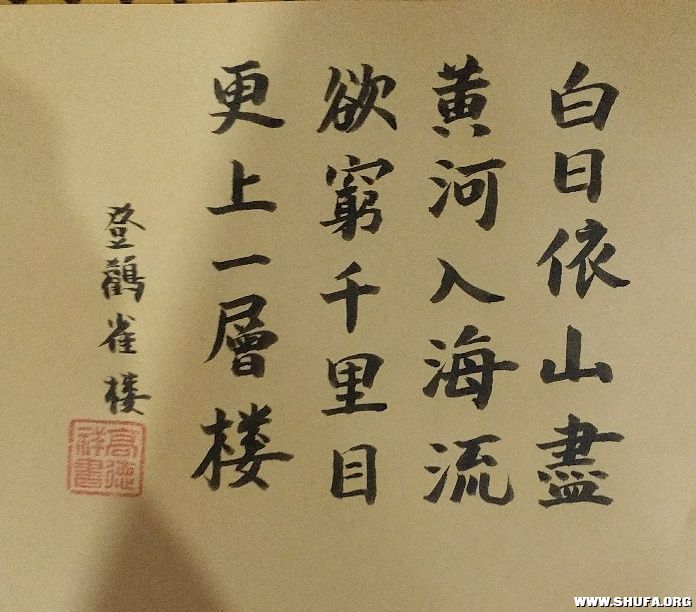 白日依山盡
黄河入海流
欲窮千里目
更上一層楼
登鸛雀楼
高德祥書
WWW.SHUFA.ORG